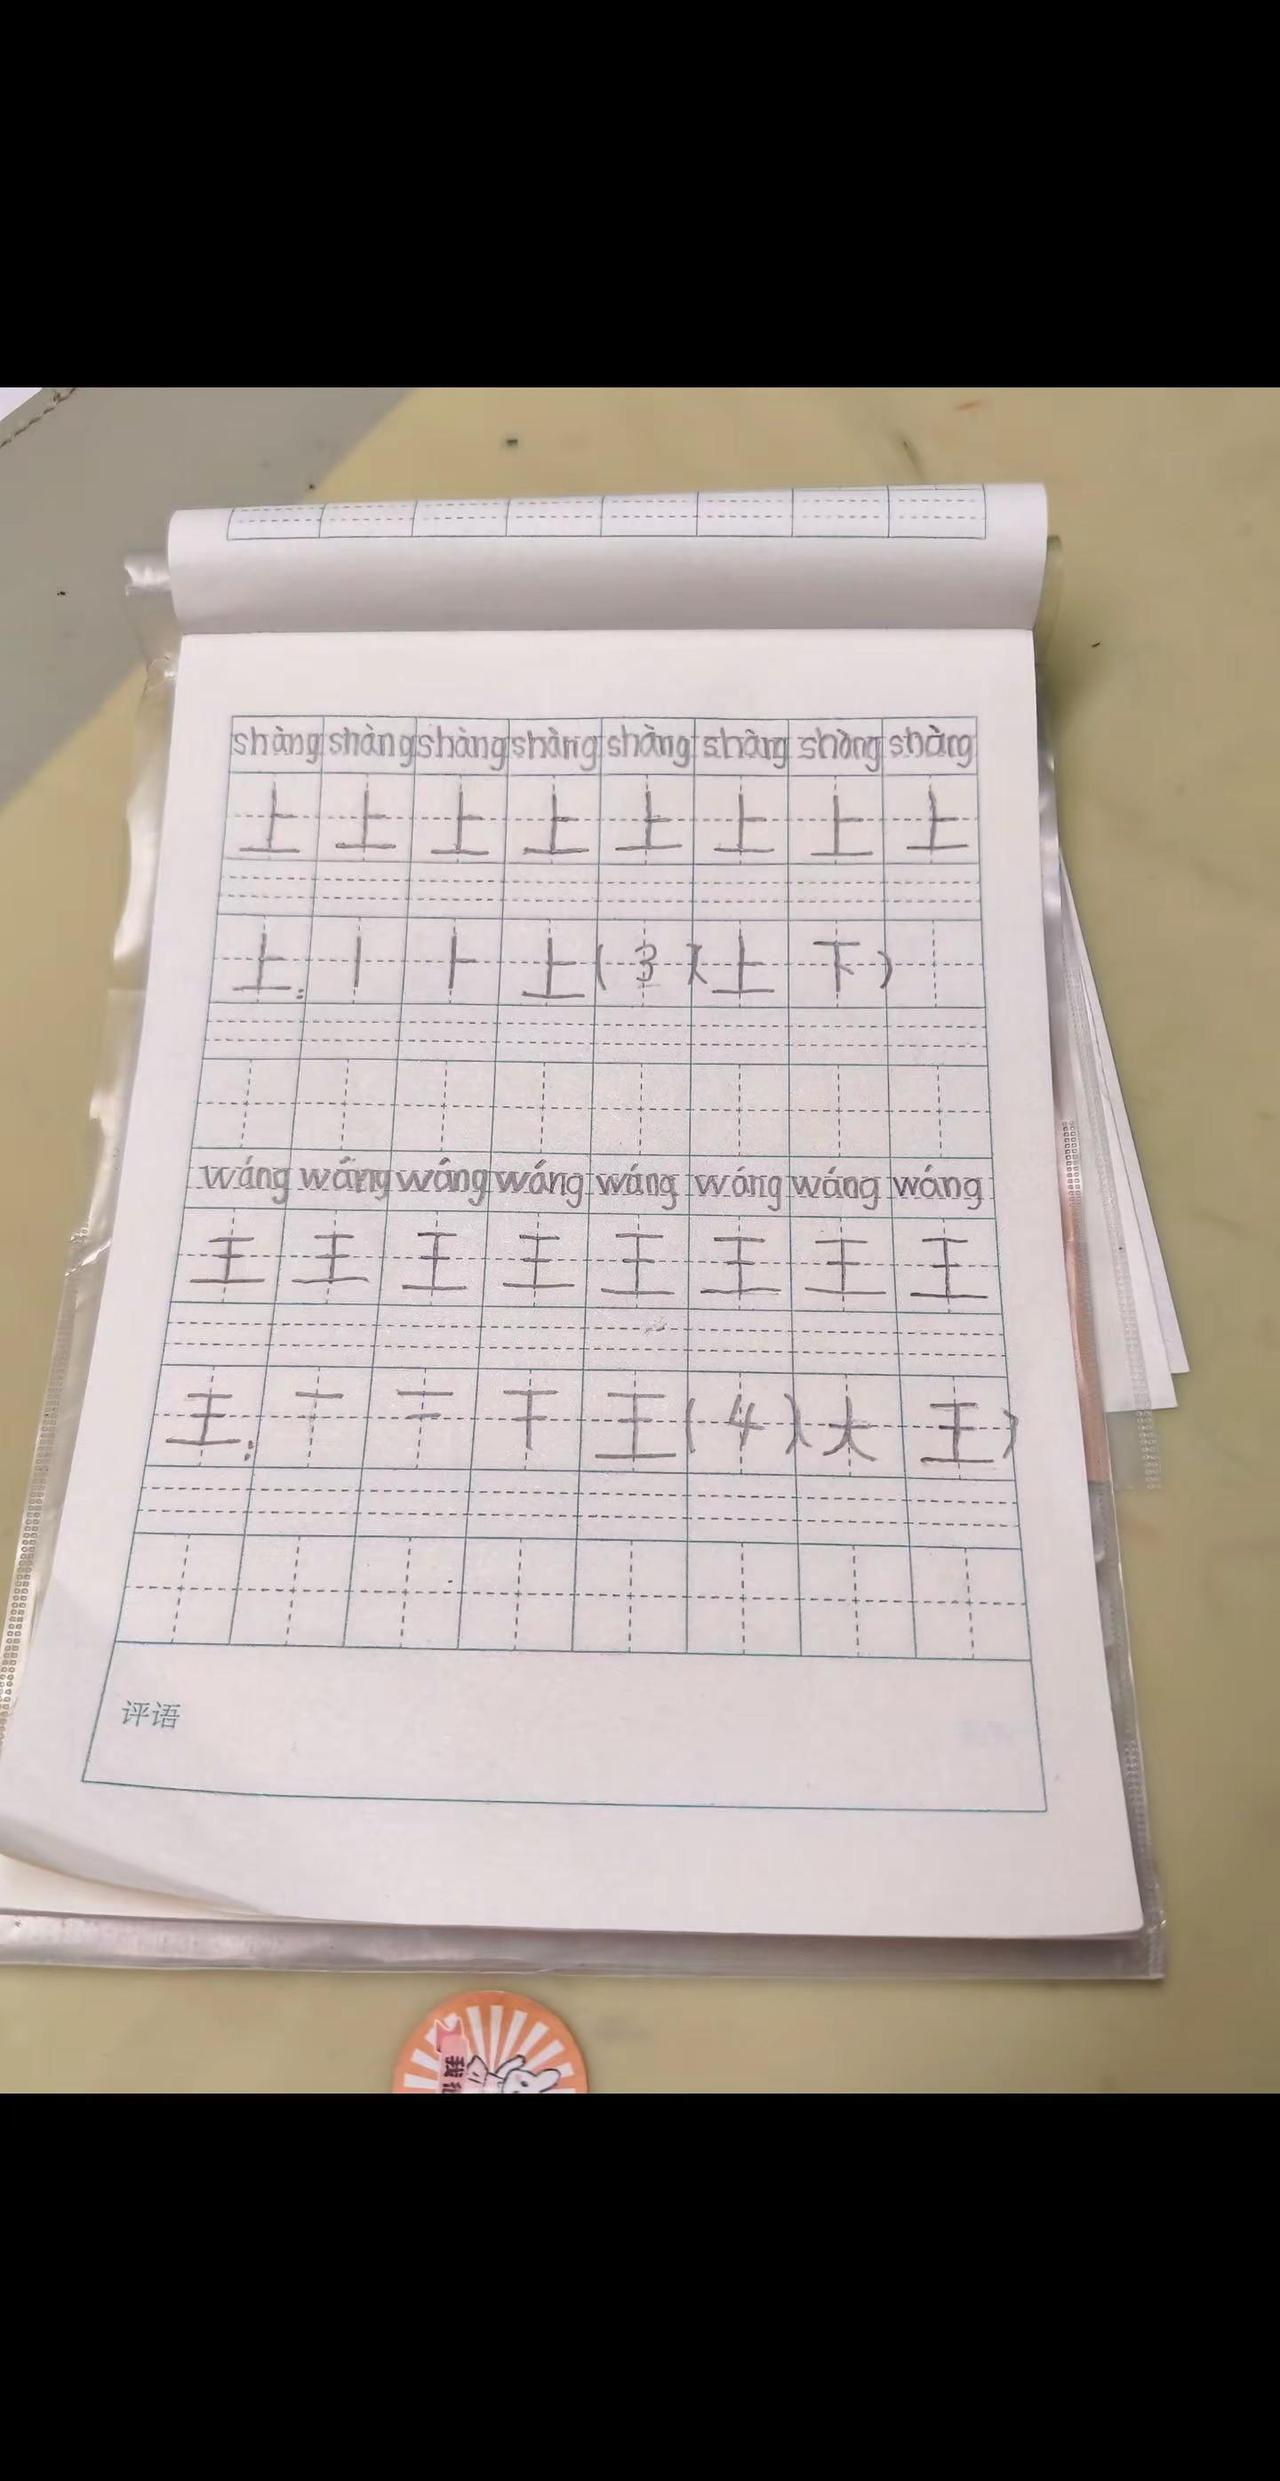 shàng shàng shàng shàng shàng shàng shàng shàng
上 上 上 上 上 上 上 上
上: 丨 ⺊ 上 (3) (上下)
wáng wáng wáng wáng wáng wáng wáng wáng
王 王 王 王 王 王 王 王
王: 一 二 干 王 (4) (大王)
评语